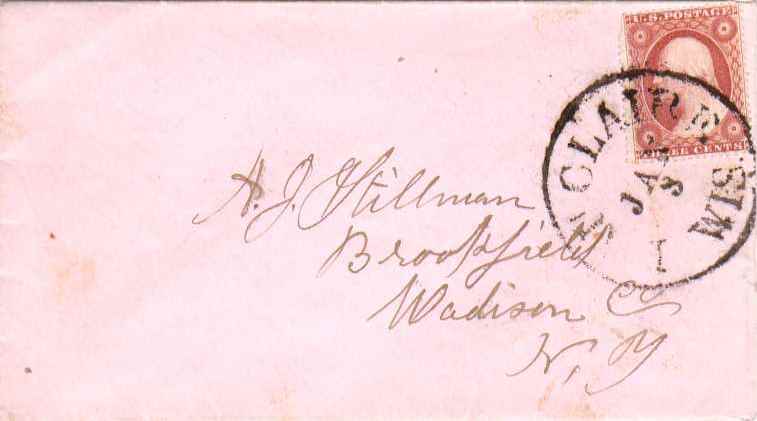 U.S. POSTAGE
THREE CENTS
CLAIRE
WIS.
JAN
A. J. Stillman
Brookfield
Madison Co
N, Y